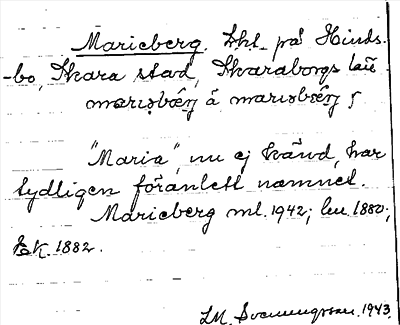 Marieberg. Lht. på Hinds-
-bo, Skara stad, Skaraborgs län
å
"Maria", nu ej känd, har
tydligen föranlett namnet.
Marieberg ml. 1942; lu. 1880;
EK. 1882.
LM. Svenungsson. 1943.